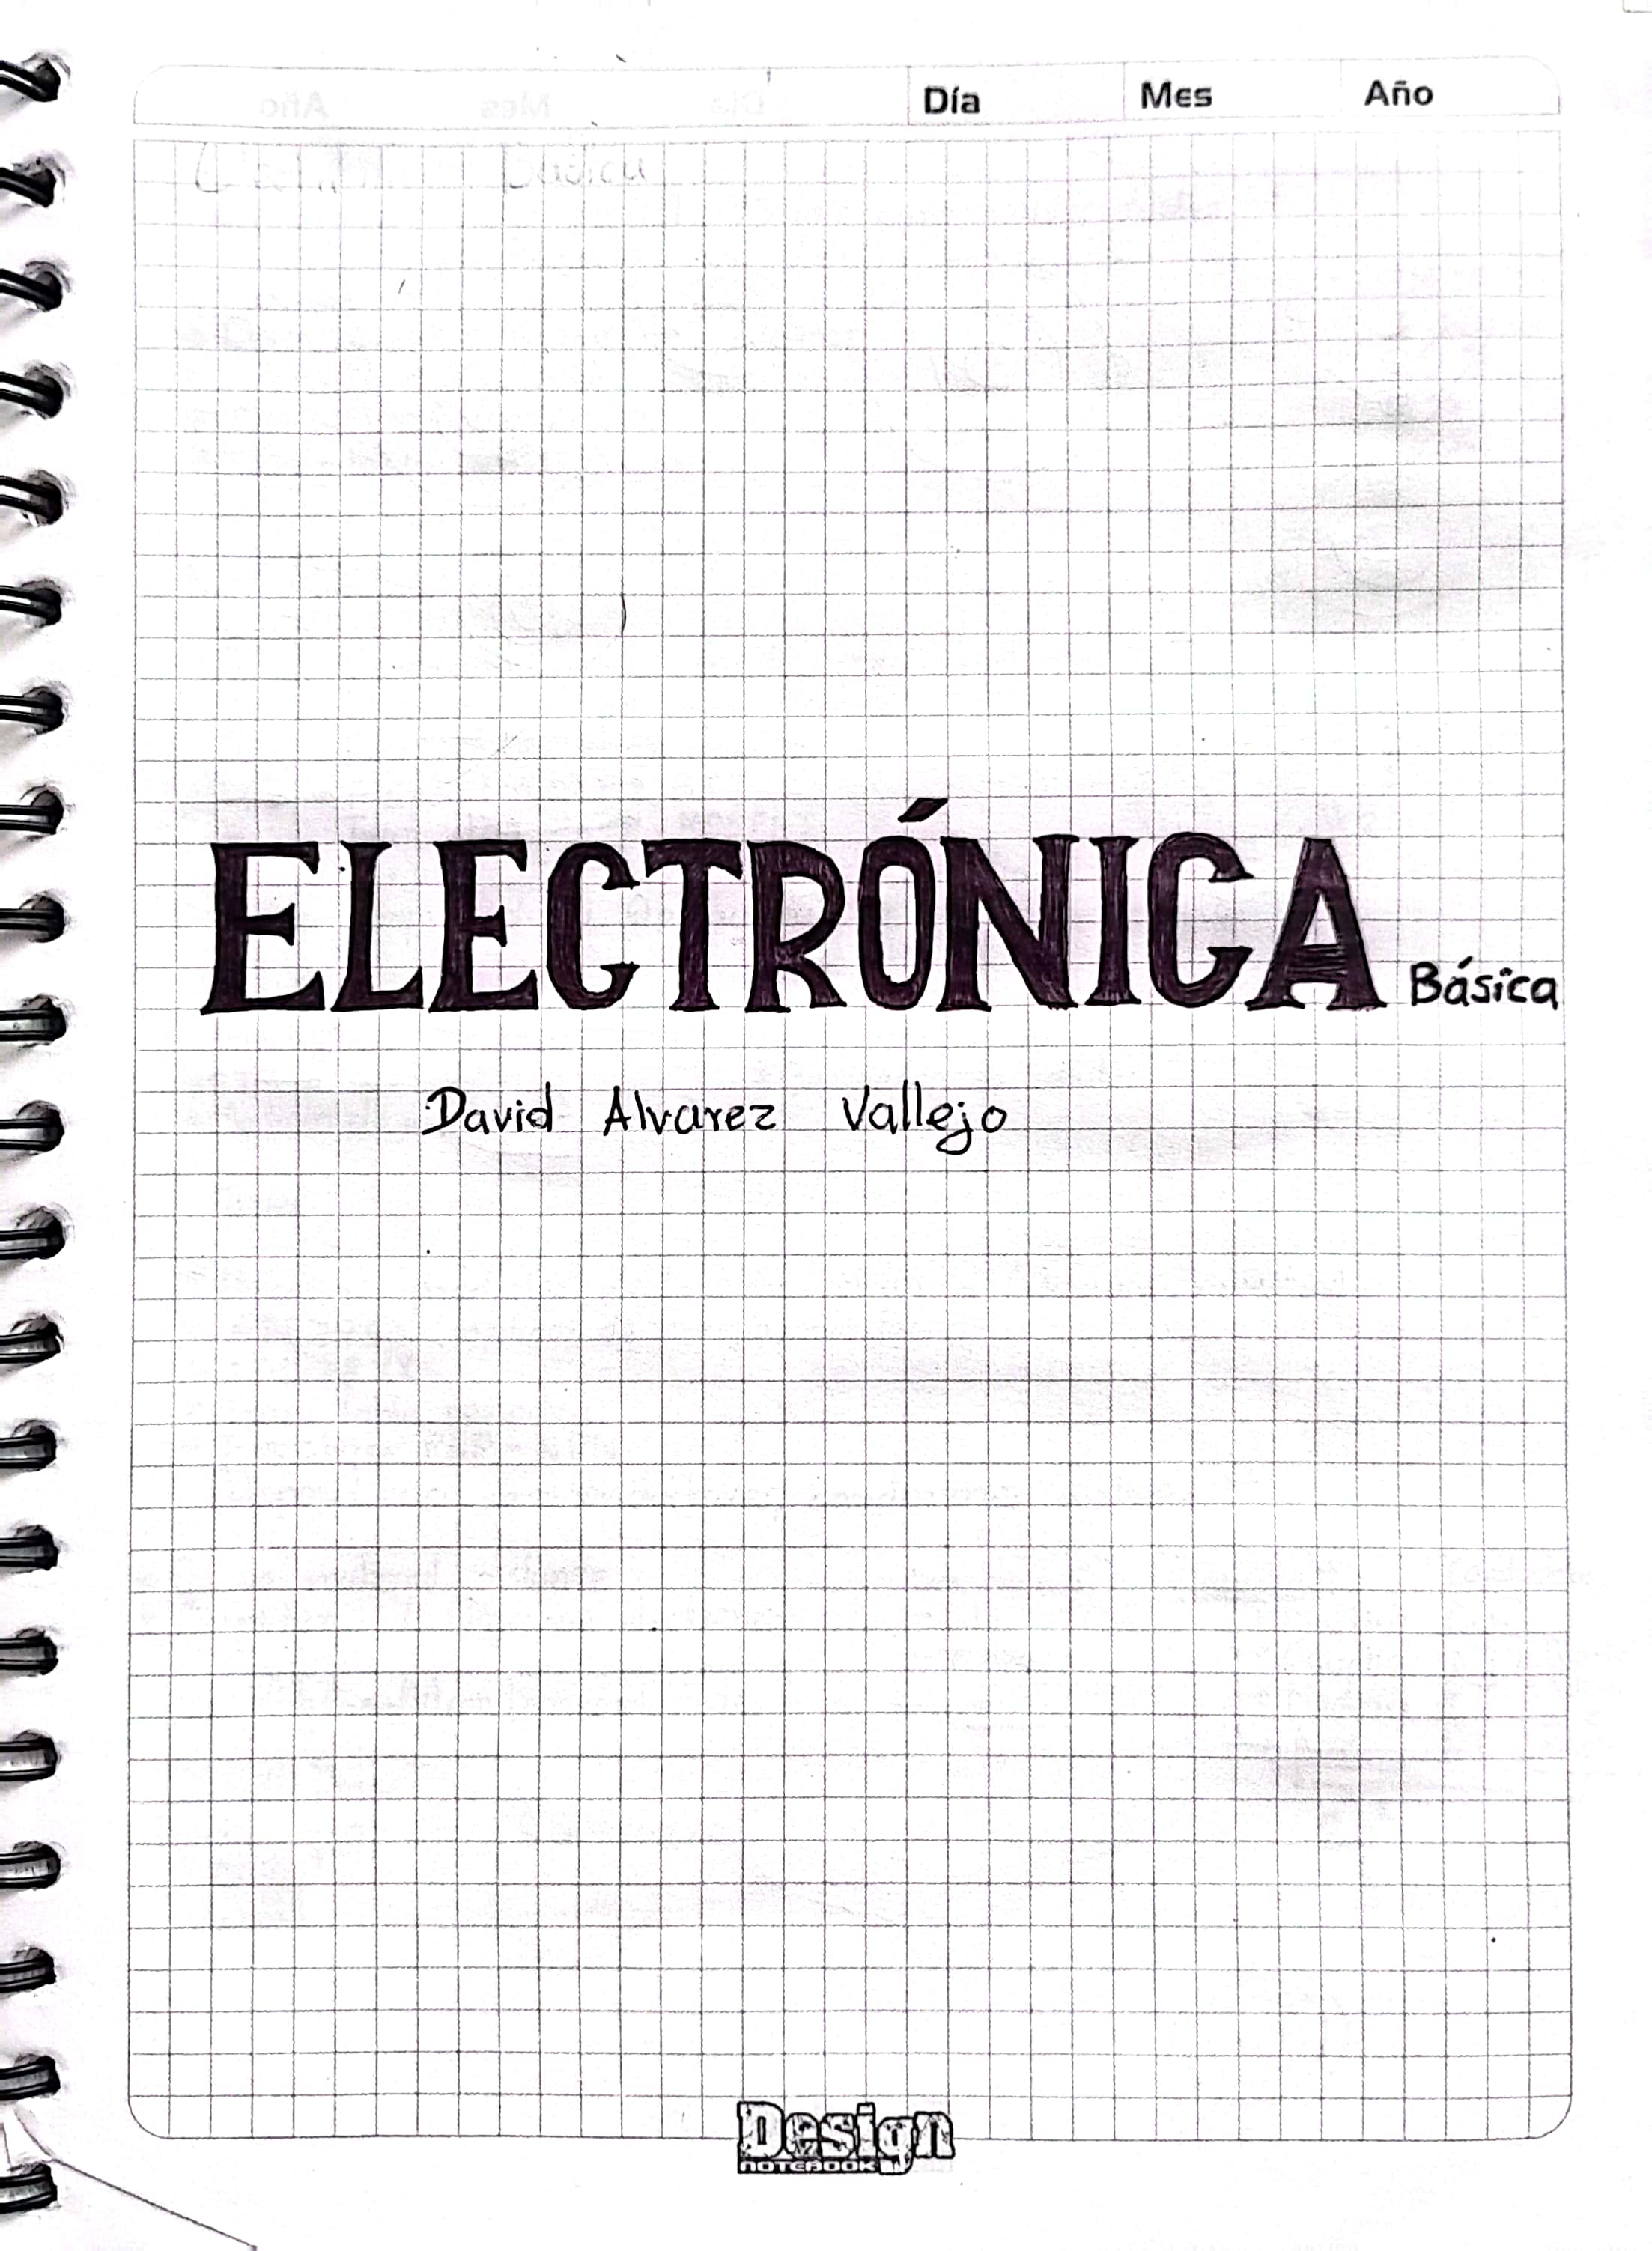 Día Mes Año
ELECTRÓNICA Básica
David Alvarez Vallejo
Design
NOTEBOOK